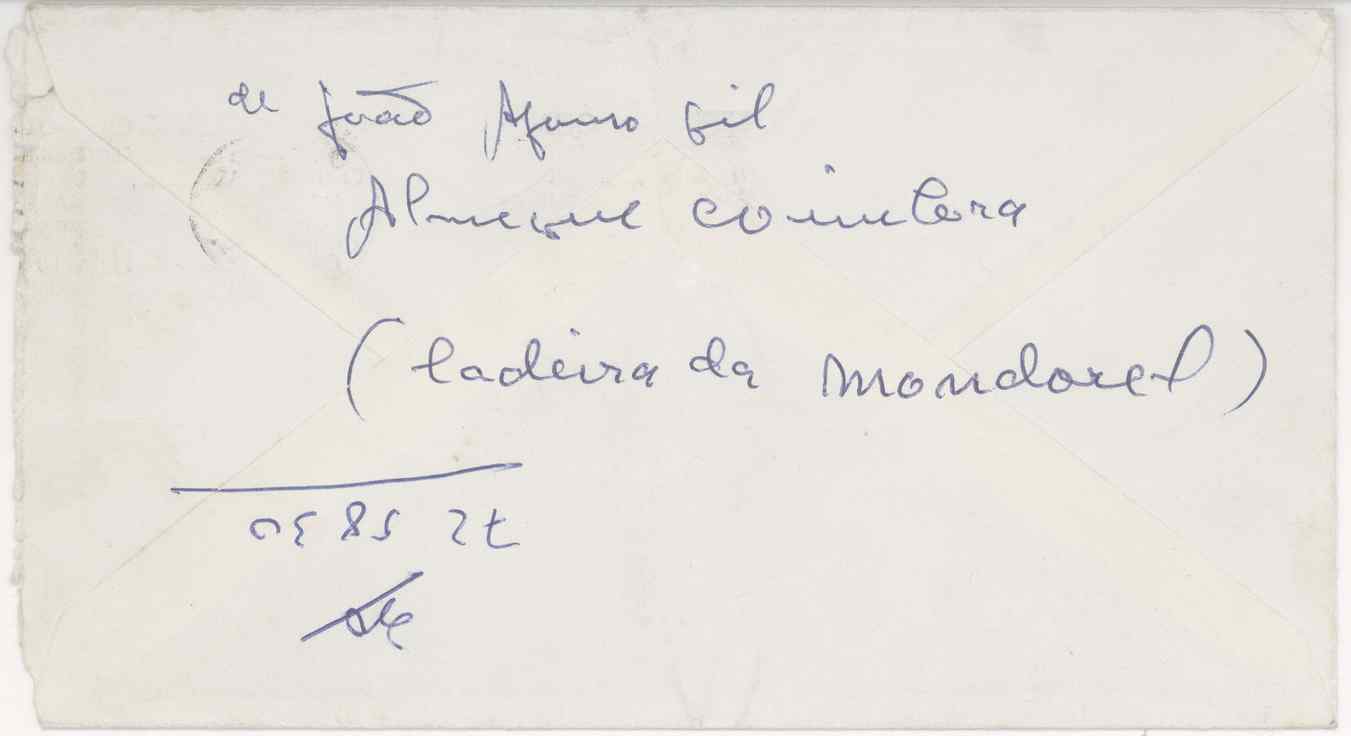 de João Afonso Gil
Almegue Coimbra
(ladeira da Mondorel)